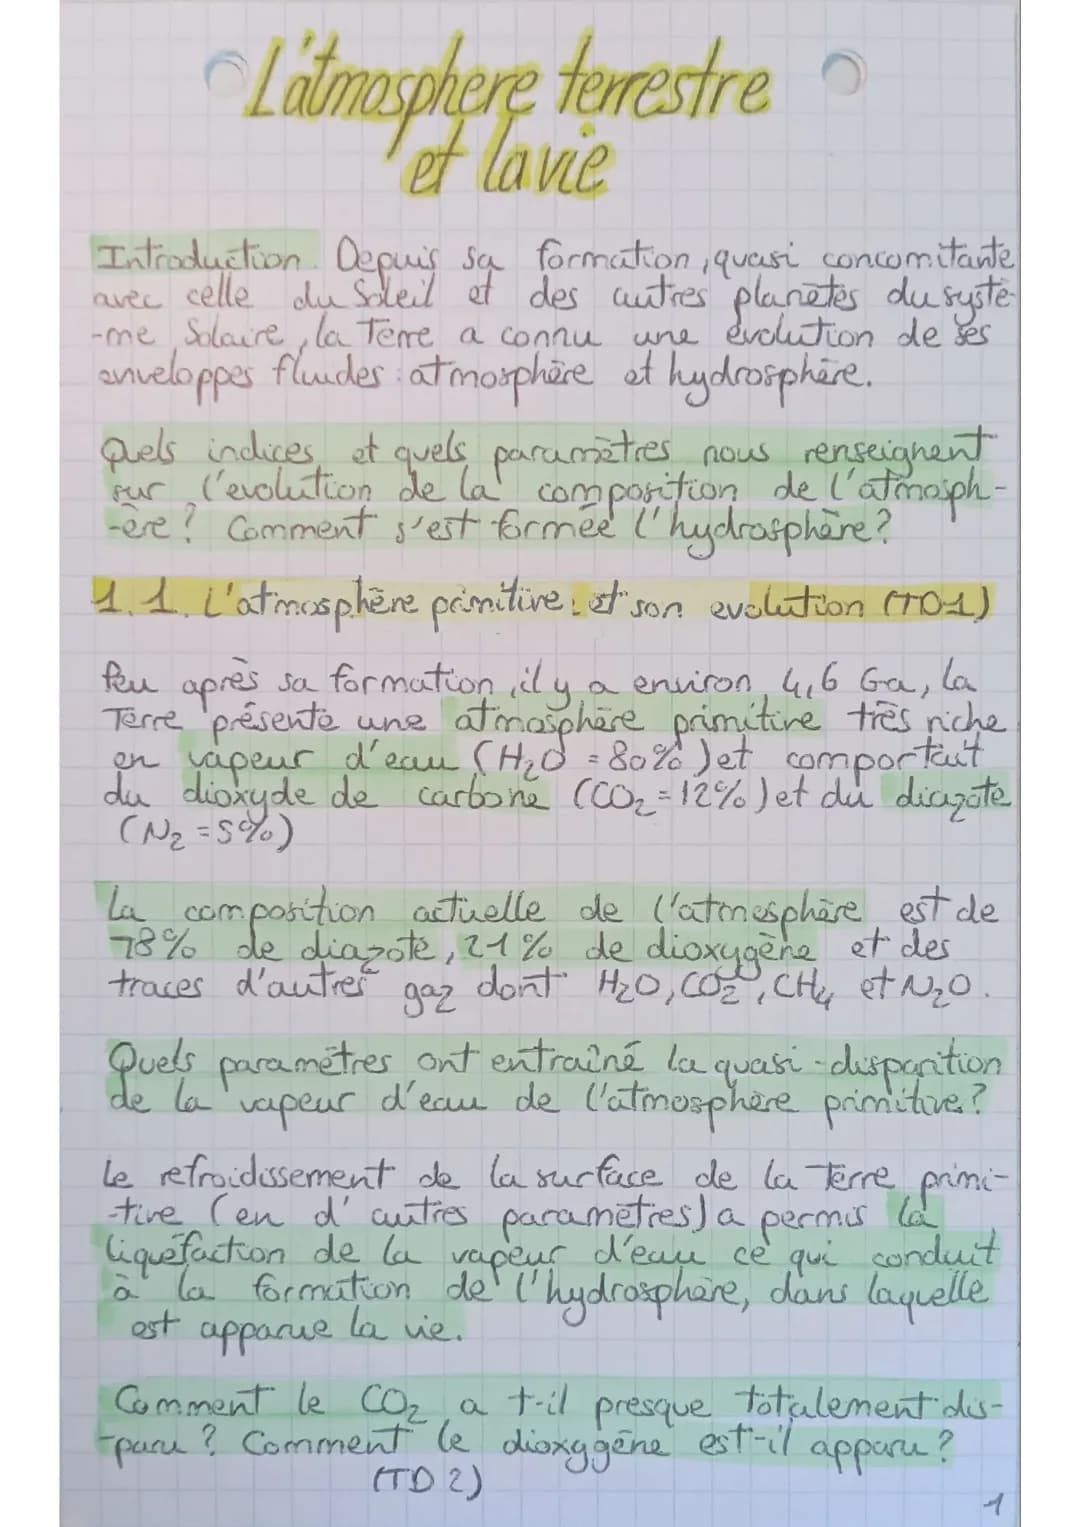 L'atmosphere terrestre
et la vie
Introduction. Depuis sa formation, quasi concomitante
avec celle du Soleil et des autres planètes du systè-
-me Solaire, la Terre a connu une évolution de ses
enveloppes fluides : atmosphère et hydrosphère.
Quels indices et quels paramètres nous renseignent
sur l'evolution de la composition de l'atmosph-
-ère ? Comment s'est formée l'hydrosphère ?
1.1. L'atmosphère primitive et son evolution (TD1)
Peu après sa formation, il y a environ 4,6 Ga, la
Terre présente une atmosphère primitive très riche
en vapeur d'eau (H₂O = 80%) et comportait
du dioxyde de carbone (CO₂ = 12%) et du diazote
(N₂ = 5%)
La composition actuelle de l'atmosphère est de
78% de diazote, 21% de dioxygène et des
traces d'autres gaz dont H₂O, CO₂, CH₄ et N₂O.
Quels paramètres ont entraîné la quasi-disparition
de la vapeur d'eau de l'atmosphère primitive ?
Le refroidissement de la surface de la Terre primi-
-tive (en d'autres paramètres) a permis la
liquéfaction de la vapeur d'eau ce qui conduit
à la formation de l'hydrosphère, dans laquelle
est apparue la vie.
Comment le CO₂ a t-il presque totalement dis-
-paru ? Comment le dioxygène est-il apparu ?
(TD 2)
1